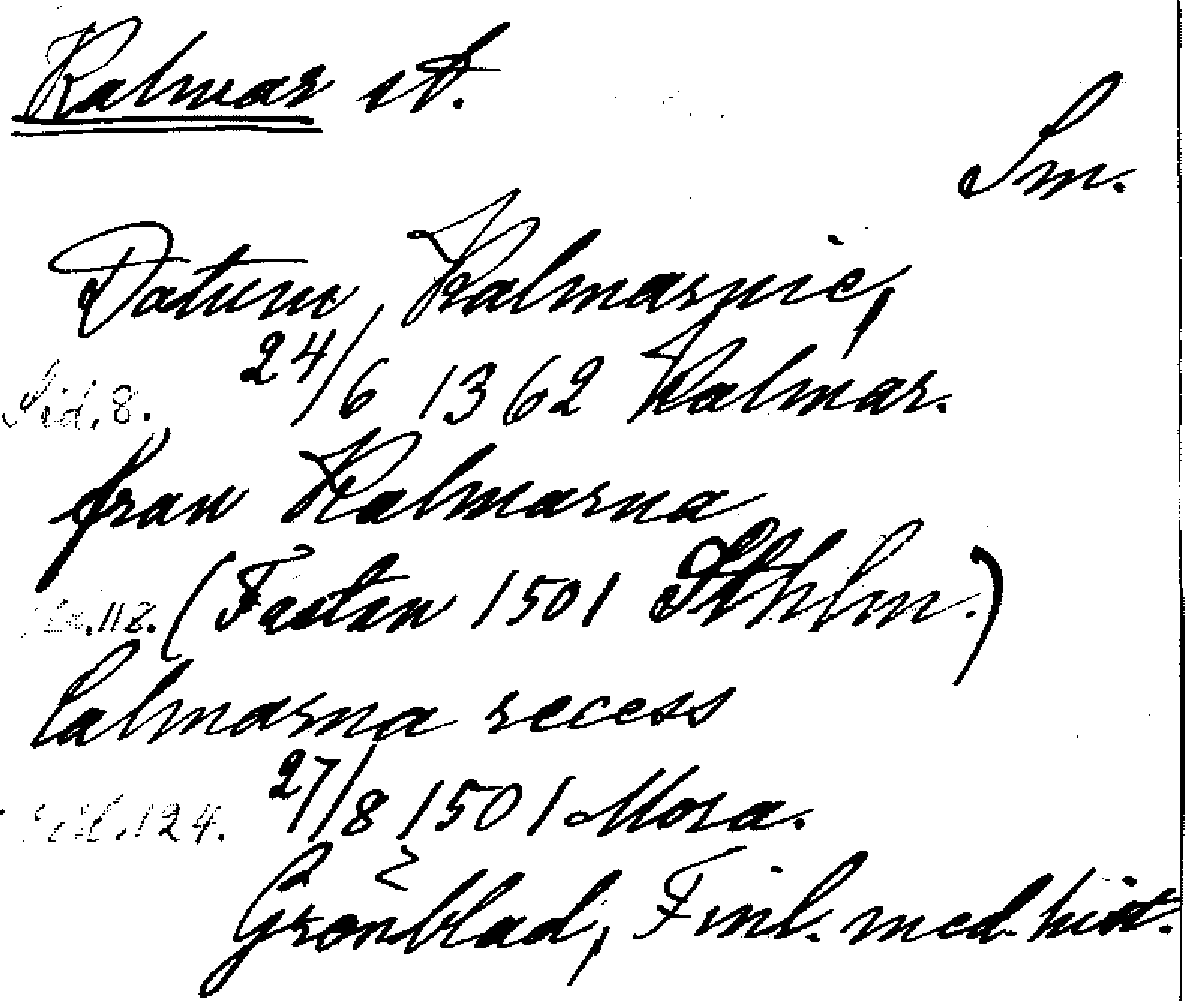 Kalmar st.
Sm.
Datum Kalmarnie,
Sid. 8. 24/6 1362 Kalmar.
fran Kalmarna
118. (Fastan 1501 Sthlm.)
Calmarna recess
124. 27/8 1501 Mora.
Grönblad, Finl. med. hist.